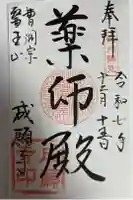 奉拝
令和七年
十二月十五日
薬師殿
曹洞宗
成願寺